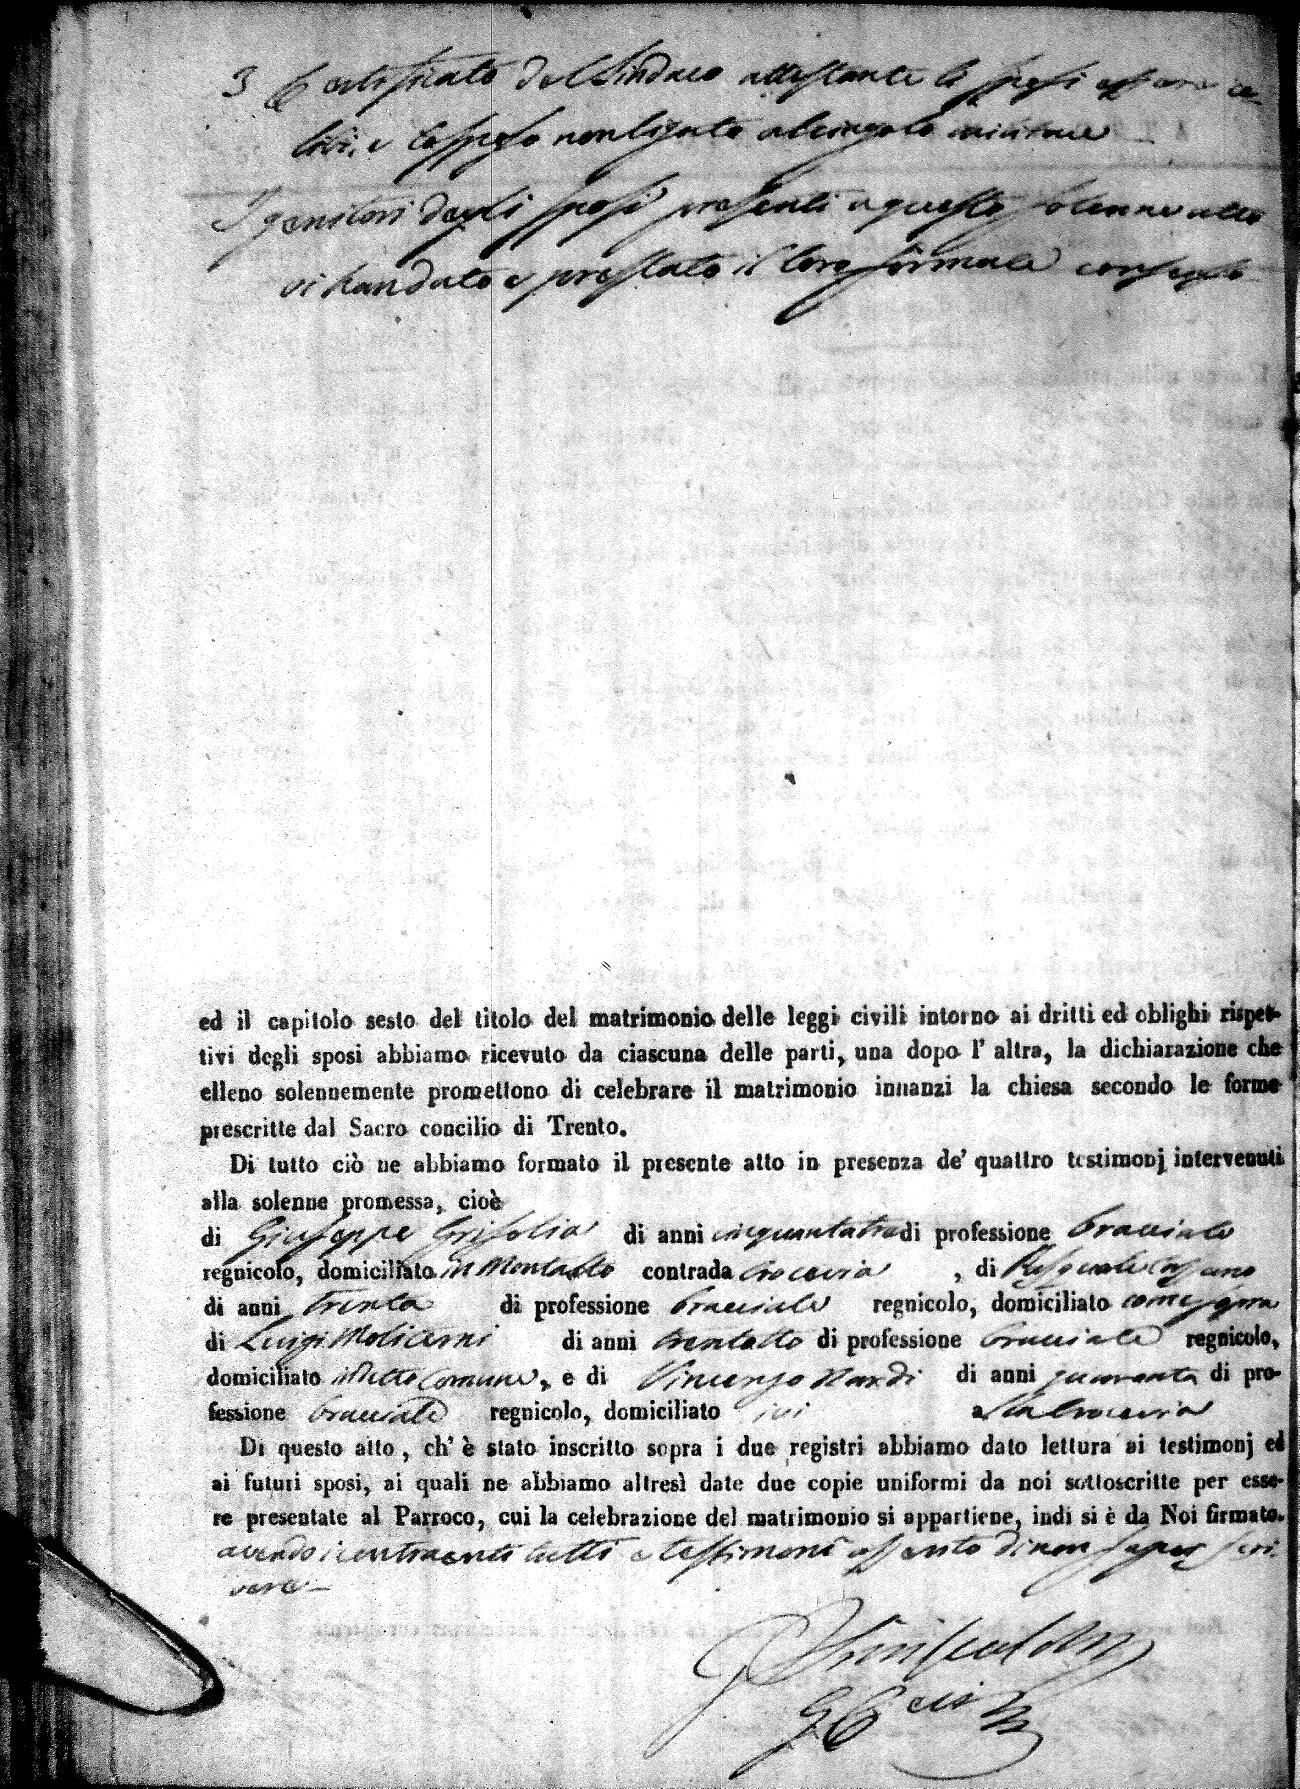 3 Certificato del Sindaco attestante lo sposi essere ce-
libi, e lo sposo non ligato al cingolo militare
I genitori degli sposi presenti a questo solenne atto
vi han dato e prestato il loro formale consenso
ed il capitolo sesto del titolo del matrimonio delle leggi civili intorno ai dritti ed oblighi rispet-
tivi degli sposi abbiamo ricevuto da ciascuna delle parti, una dopo l' altra, la dichiarazione che
elleno solennemente promettono di celebrare il matrimonio innanzi la chiesa secondo le forme
prescritte dal Sacro concilio di Trento.
Di tutto ciò ne abbiamo formato il presente atto in presenza de' quattro testimonj intervenuti
alla solenne promessa, cioè
di Giuseppe Grisolia di anni cinquantatre di professione bracciale
regnicolo, domiciliato in Montalto contrada Crocevia , di Pasquale
di anni trenta di professione bracciale regnicolo, domiciliato come sopra
di Luigi Molicerni di anni trentotto di professione bracciale regnicolo,
domiciliato in detto Comune, e di Vincenzo Nardi di anni quaranta di pro-
fessione bracciale regnicolo, domiciliato ivi alla Crocevia
Di questo atto, ch' è stato inscritto sopra i due registri abbiamo dato lettura ai testimonj ed
ai futuri sposi, ai quali ne abbiamo altresì date due copie uniformi da noi sottoscritte per esse-
re presentate al Parroco, cui la celebrazione del matrimonio si appartiene, indi si è da Noi firmato.
avendo i contraenti tutti e testimoni assento di non saper scri-
vere